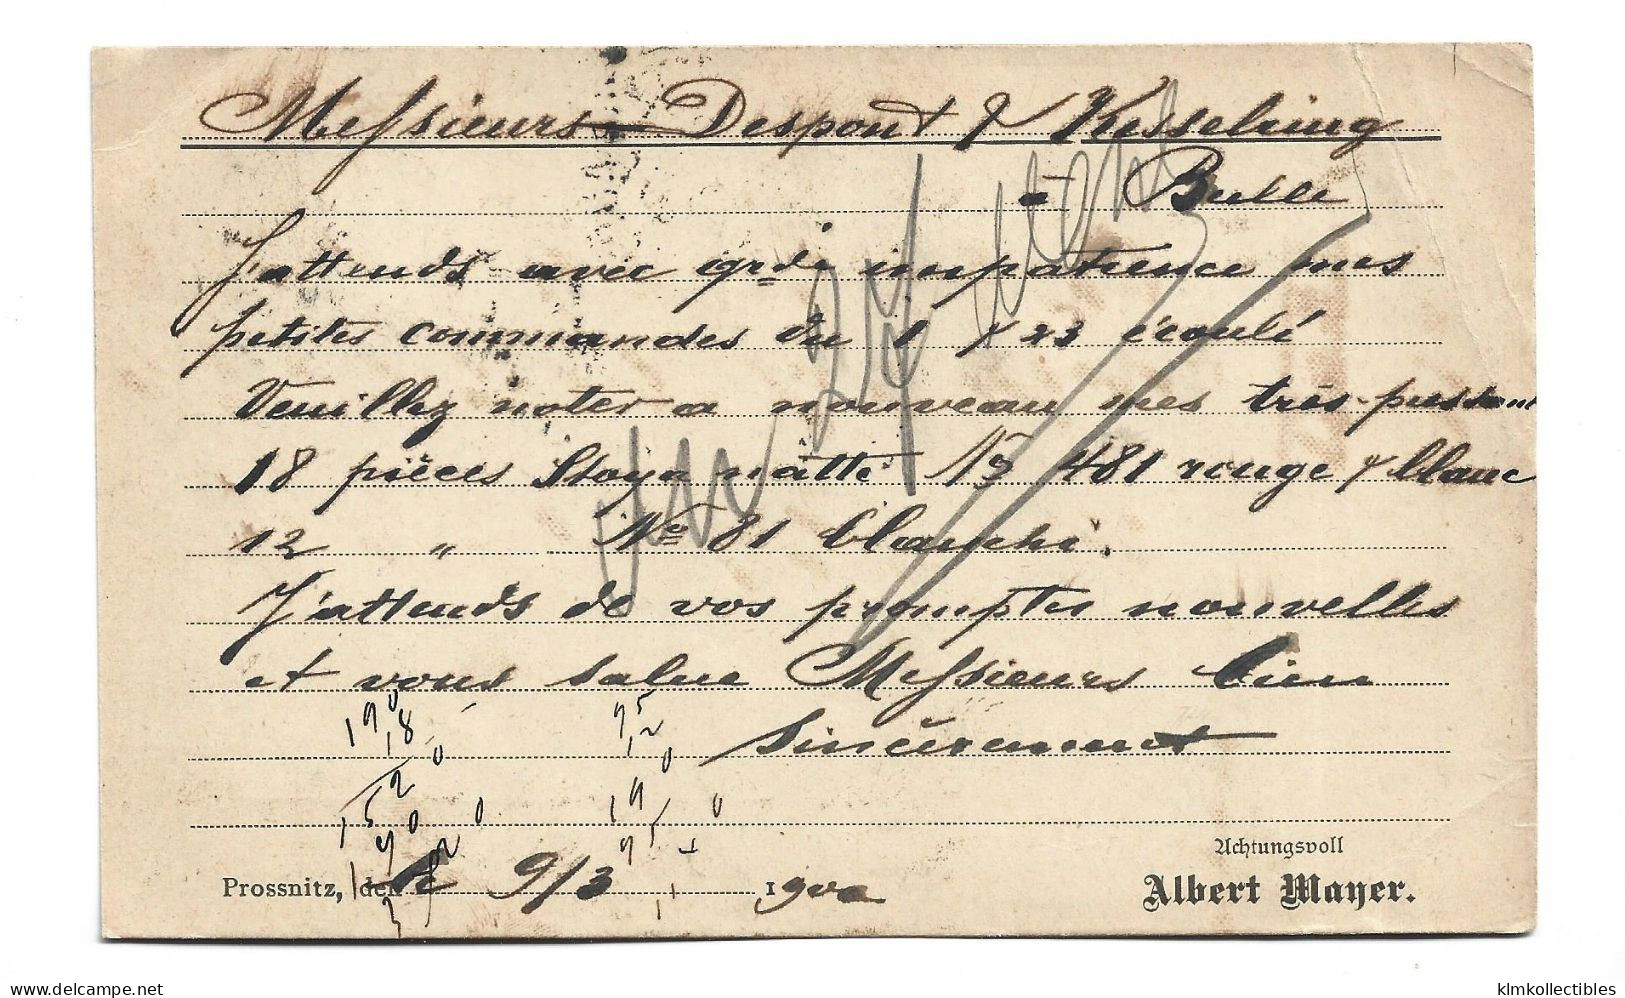 Messieurs Despont & Kesselring
à Bulle
J'attends avec grde impatience mes
petites commandes du 1 & 23 écoulé
Veuillez noter a nouveau mes très-pressant
18 pièces Stoya natté No 481 rouge & blanc
12 " No 81 blanche.
J'attends de vos promptes nouvelles
et vous salue Messieurs bien
Sincèrement
Achtungsvoll
Prossnitz, den le 9/3 1900
Albert Mayer.
delcampe.net
klmkollectibles